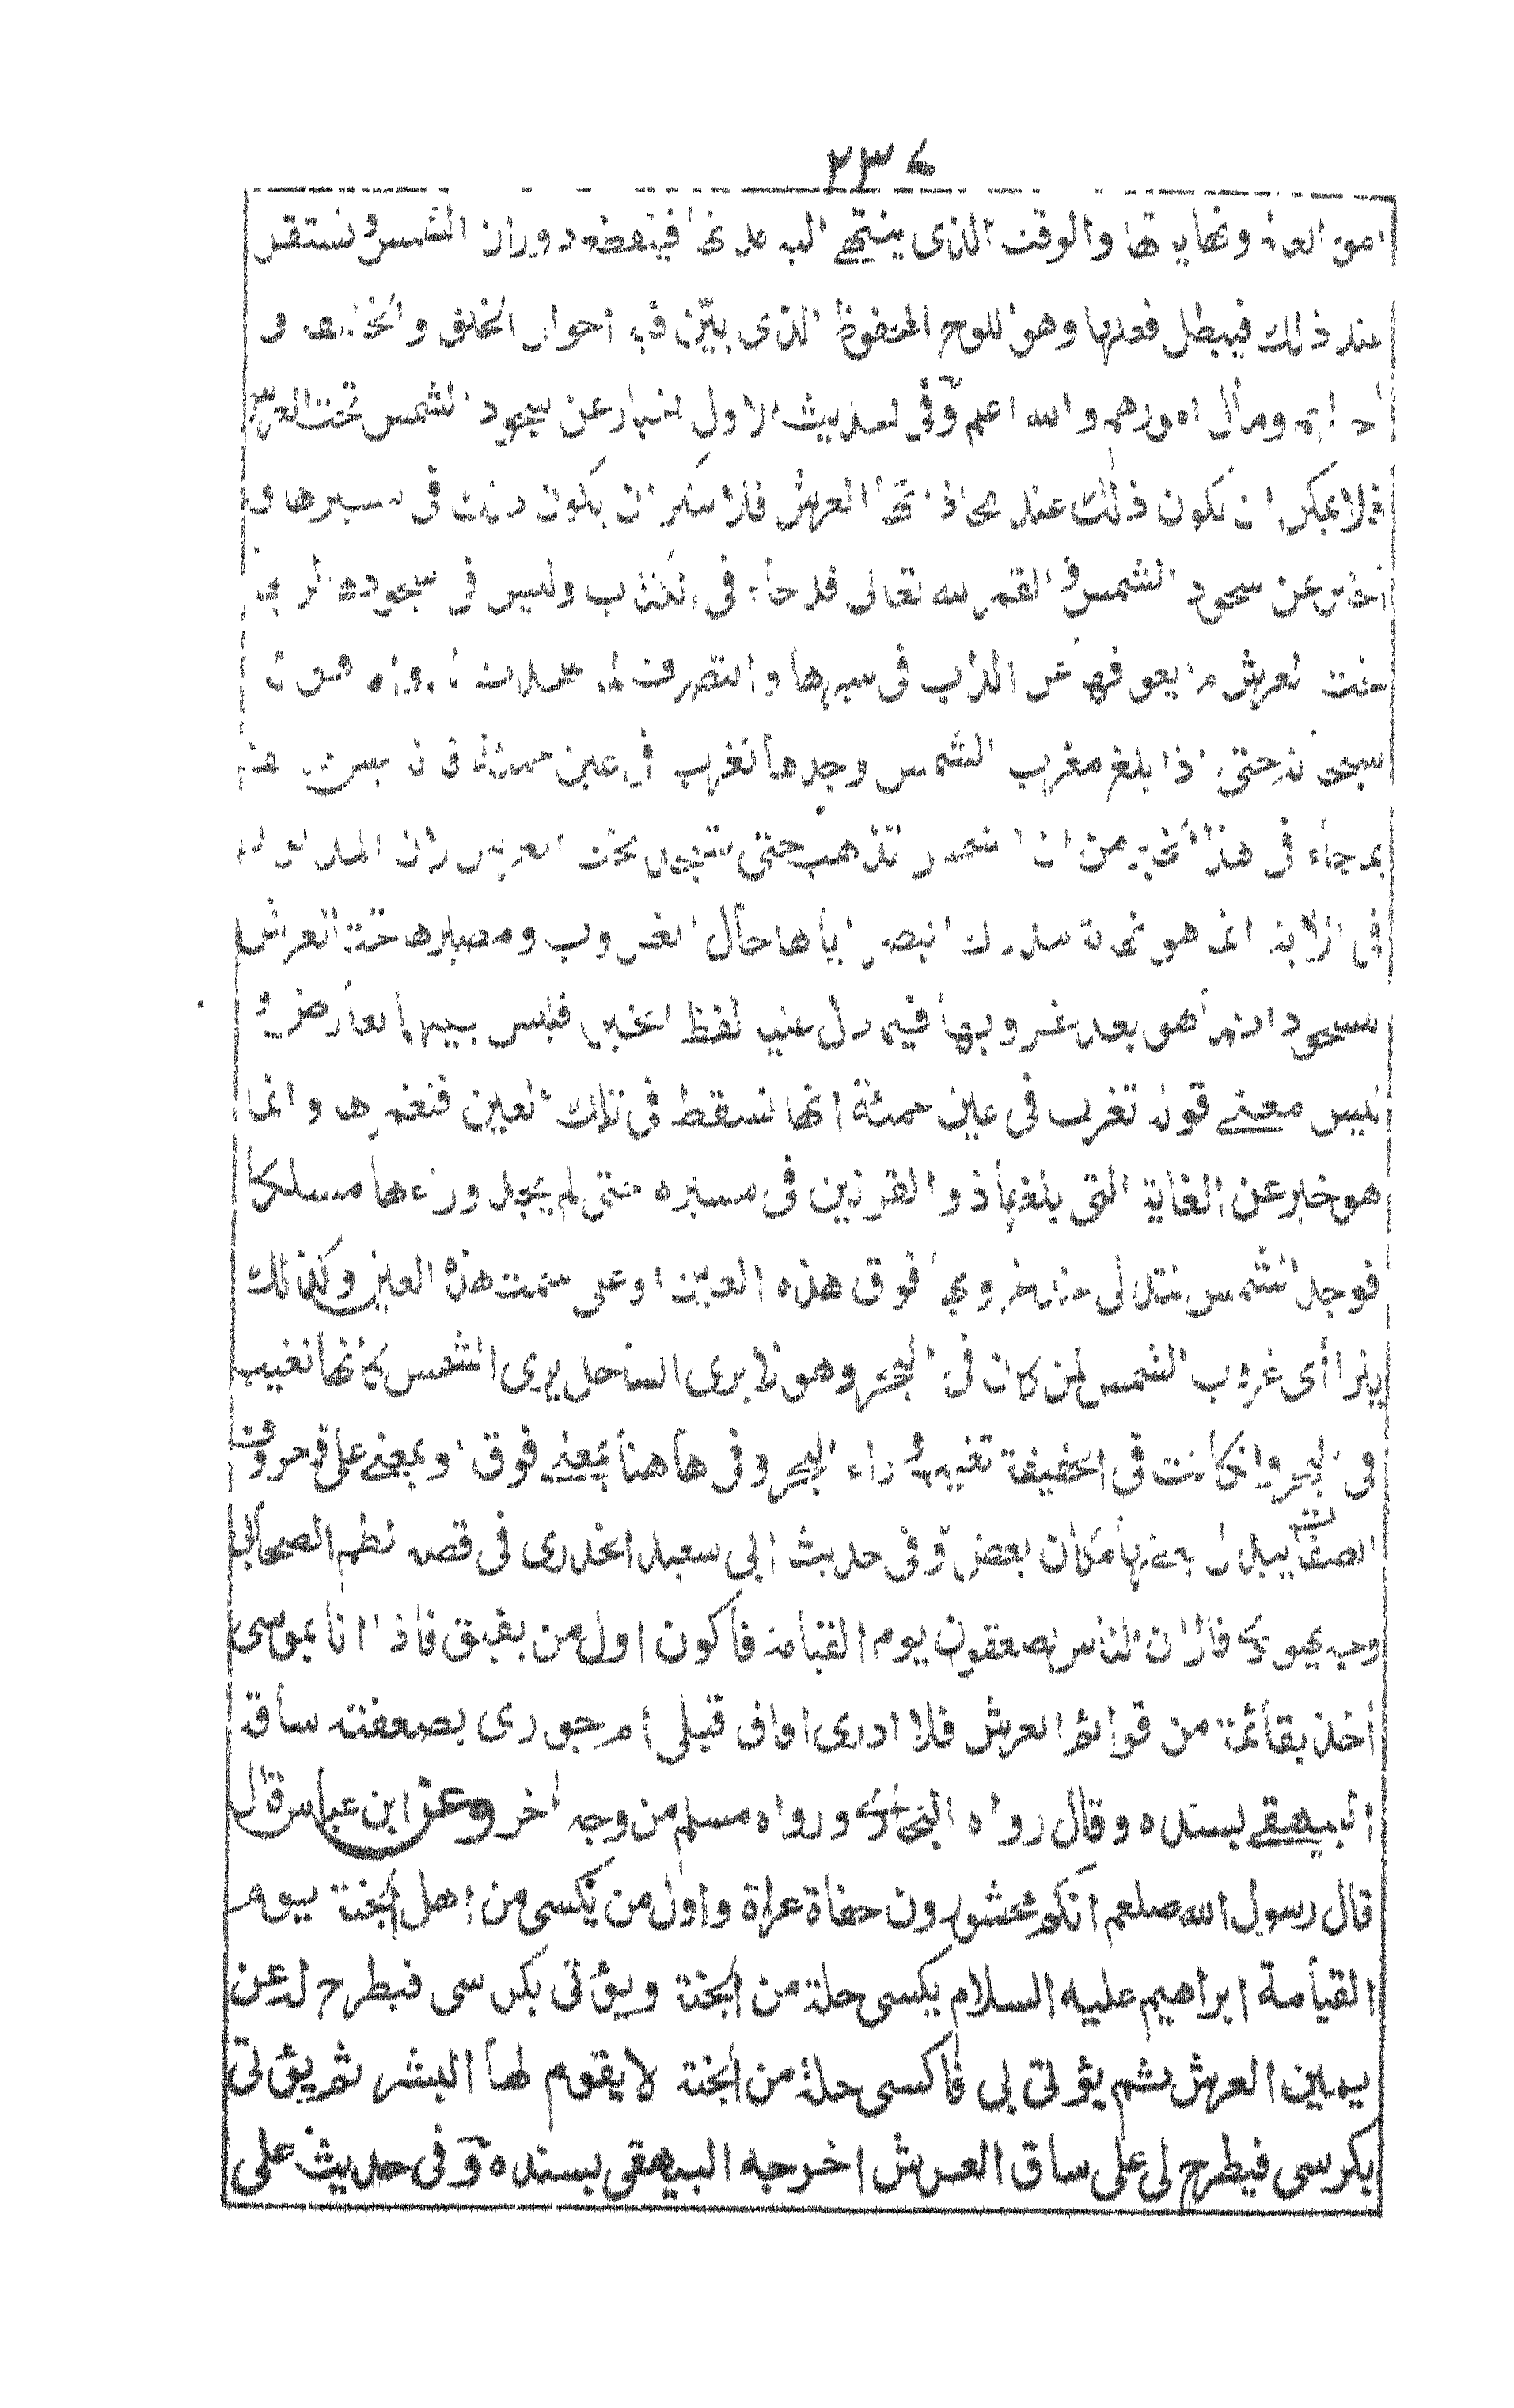 ٢٣٧
امور العالم ونهايتها والوقت الذى ينتهى اليه مدتها فينقطع دوران الشمس وتستقر
عند ذلك فيبطل فعلها وهو اللوح المحفوظ الذى بيّن فيه احوال الخلق والخليقة و
اجالهم ومآل امورهم والله اعلم وفى الحديث الاول اخبار عن سجود الشمس تحت العرش
فلا يمكن ان يكون ذلك عند محاذاتها العرش فلا ينكر ان يكون ذلك فى مسيرها و
اخبر عن سجود الشمس و القمر لله تعالى قد جاء فى الكتاب وليس فى سجودها لربها
تحت العرش ما يعوقها عن الداب فى سيرها والتصرف لما
سبحانه حتى اذا بلغ مغرب الشمس وجدها تغرب فى عين حمئة
بما جاء فى هذا الخبر من ان الشمس تذهب حتى تسجد تحت العرش لان المذكور
فى الاية انما هو نهاية مدرك البصر اياها حال الغروب ومصيرها تحت العرش
للسجود انما هو بعد غروبها فيما دل عليه لفظ الخبر فليس بينهما تعارض و
ليس معنى قوله تغرب فى عين حمئة انها تسقط فى تلك العين فتغمرها وانما
هو خبر عن الغاية التى بلغها ذو القرنين فى مسيره حتى لم يجد وراءها مسلكا
فوجد الشمس تتدلى عند غروبها فوق هذه العين او على سمت هذه العين وكذلك
يتراأى غروب الشمس لمن كان فى البحر وهو لا يرى الساحل يرى الشمس كانها تغيب
فى البحر وانكانت فى الحقيقة تغيب وراء البحر وفى هاهنا بمعنى فوق او بمعنى على وحروف
الصفات يبدل بعضها مكان بعض وفى حديث ابى سعيد الخدرى فى قصة لطم الصحابى
وجه يهودى قال ان الناس يصعقون يوم القيامة فاكون اول من يفيق فاذا انا بموسى
أخذ بقائمة من قوائم العرش فلا ادرى افاق قبلى ام جوزى بصعقته ساقه
البيهقى بسنده وقال رواه البخارى ورواه مسلم من وجه اخر وعن ابن عباس قال
قال رسول الله صلعم انكم محشورون حفاة عراة واول من يكسى من اهل الجنة يوم
القيامة ابراهيم عليه السلام يكسى حلة من الجنة ويؤتى بكرسى فيطرح له عن
يمين العرش ثم يؤتى بى فاكسى حلة من الجنة لا يقوم لها البشر ثم يؤتى
بكرسى فيطرح لى على ساق العرش اخرجه البيهقى بسنده وفى حديث على